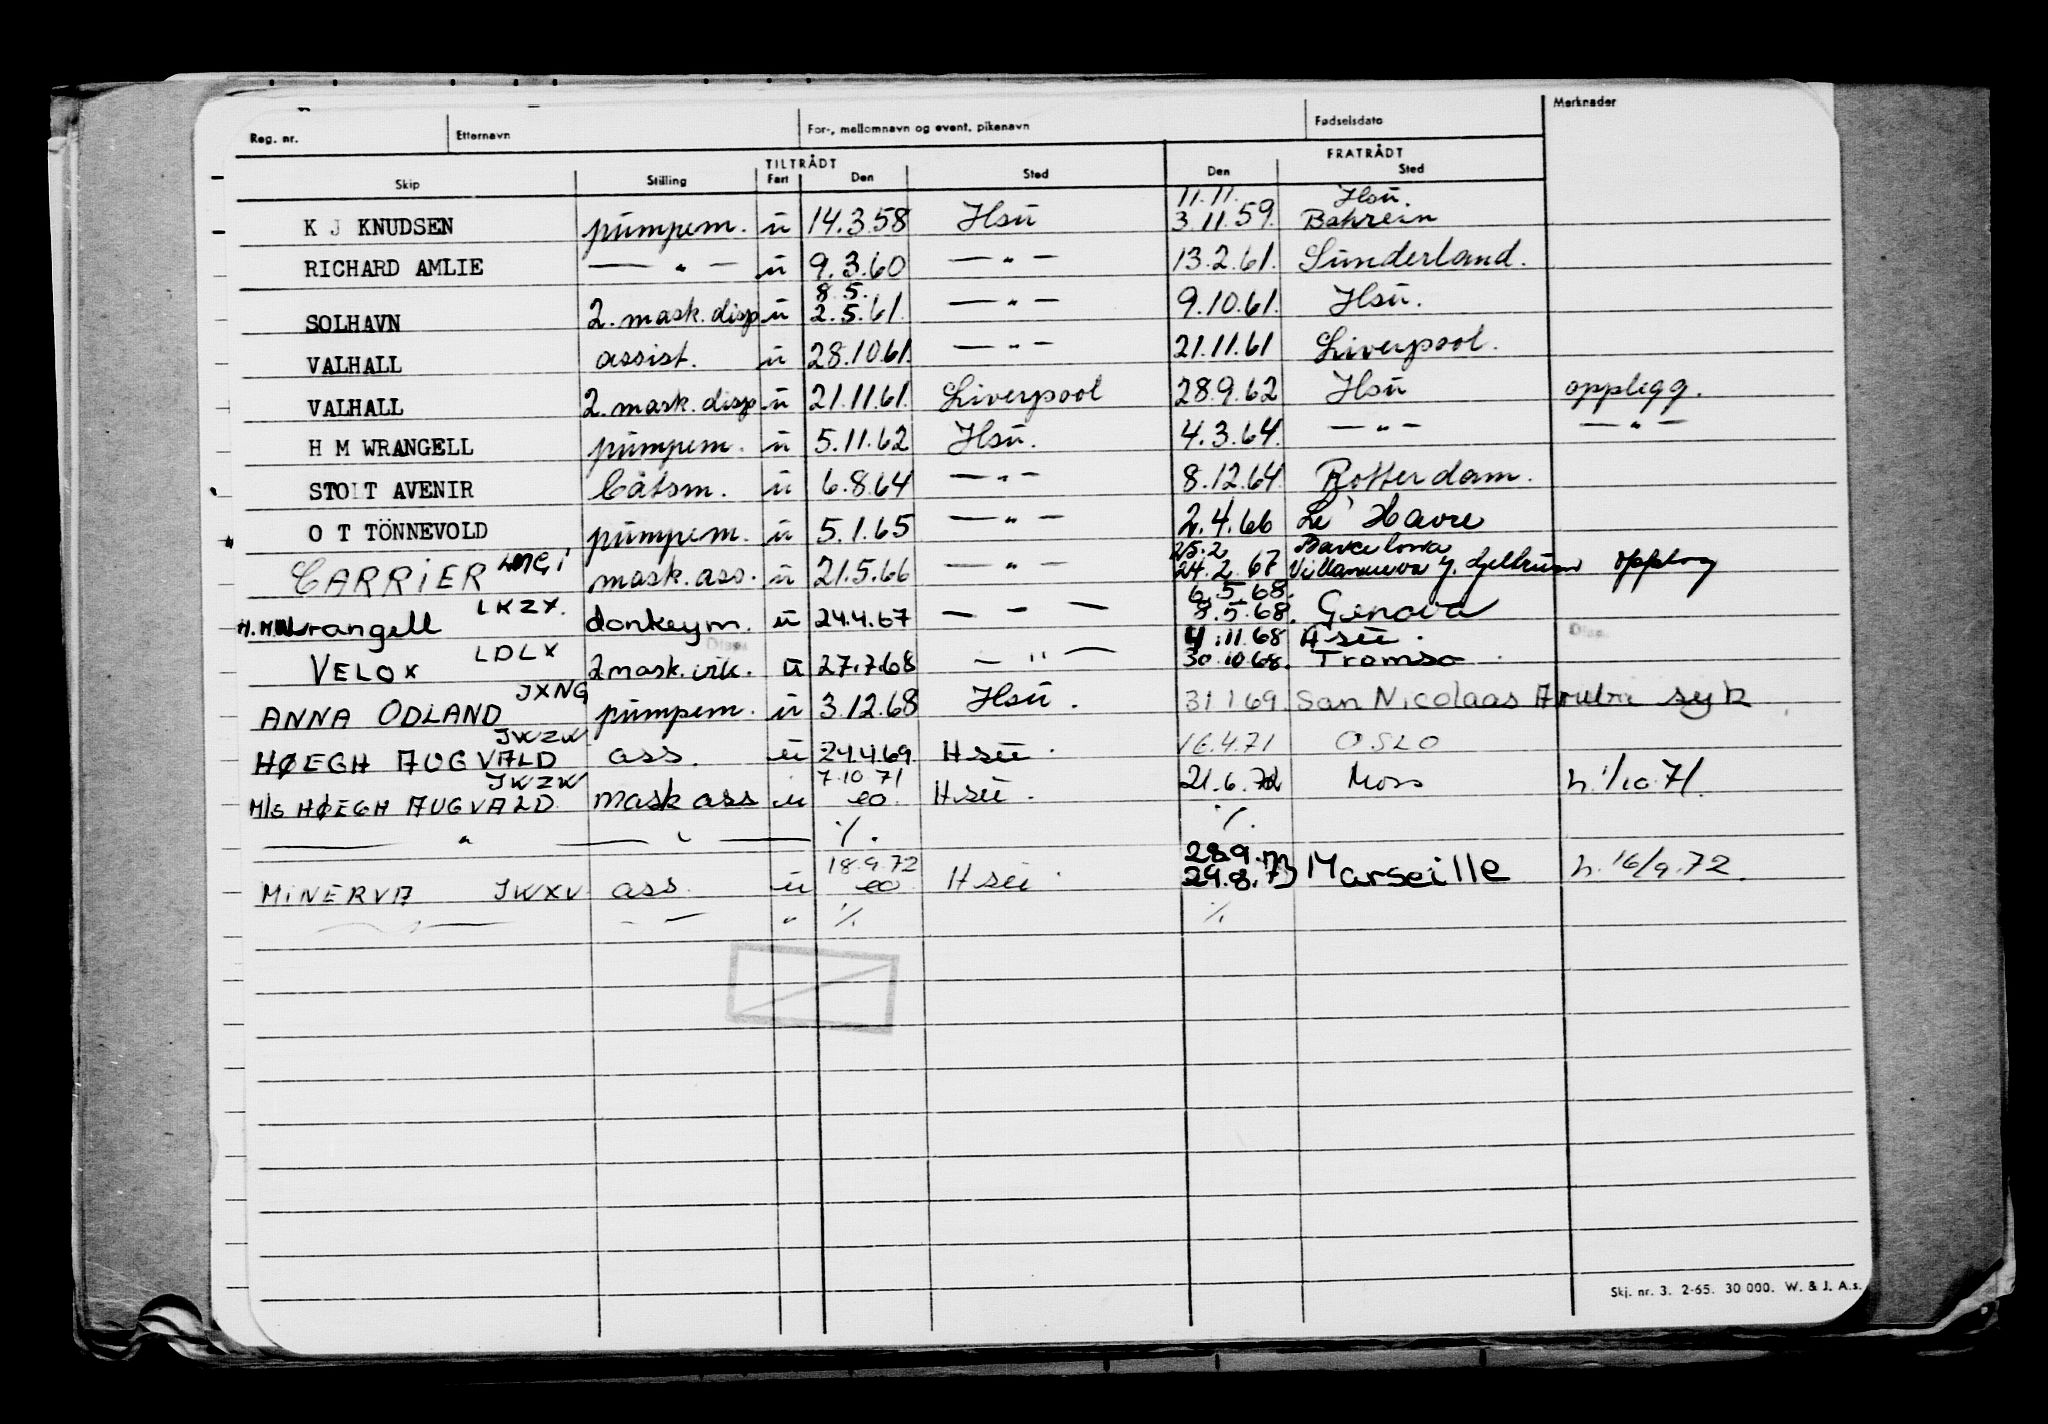 Reg. nr. Etternavn For-, mellomnavn og event. pikenavn Fødselsdato Merknader
TILTRÅDT FRATRÅDT
Skip Stilling Fart Den Sted Den Sted
11.11. Hsü.
K J KNUDSEN pümpem. ü 14.3.58 Hsü 3.11.59. Bahrein
RICHARD AMLIE — " — ü 9.3.60 — " — 13.2.61. Sünderland.
8.5.
SOLHAVN 2. mask. disp ü 2.5.61. — " — 9.10.61. Hsü.
VALHALL assist. ü 28.10.61. — " — 21.11.61 Liverpool.
VALHALL 2. mask. disp. ü 21.11.61. Liverpool 28.9.62 Hsü opplegg.
H M WRANGELL pümpem. ü 5.11.62 Hsü. 4.3.64. — " — — " —
STOLT AVENIR båtsm. ü 6.8.64 — " — 8.12.64. Rotterdam.
O T TÖNNEVOLD pümpem. ü 5.1.65 — " — 2.4.66 Le Havre
25.2 Barcelona
CARRIER mask. ass. ü 21.5.66 — " — 24.2.67 Villanueva y Geltrú opplag
LKZX. 6.5.68.
H.M. Wrangell donkeym. ü 24.4.67 — " — 8.5.68. Genova
LDLX 4.11.68 Hsü.
VELOX 2 mask. vik. ü 27.7.68 — " — 30.10.68. Tromsø
JXNG
ANNA ODLAND pümpem. ü 3.12.68 Hsü. 31.1.69. San Nicolaas Aruba syk
JWZW
HØEGH AUGVALD ass. ü 24.4.69. Hsü. 16.4.71 OSLO
JWZW 7.10.71
M/S HØEGH AUGVALD mask ass ü eo. Hsü. 21.6.72 Moss h. 1/10.71.
— " — — " — ./. ./.
18.9.72 28.9.73
MINERVA JWXV ass. ü eo Hsü. 29.8.73 Marseille h. 16/9.72.
— " — — " — " ./. ./.
Skj. nr. 3. 2-65. 30 000. W. & J. A.s.